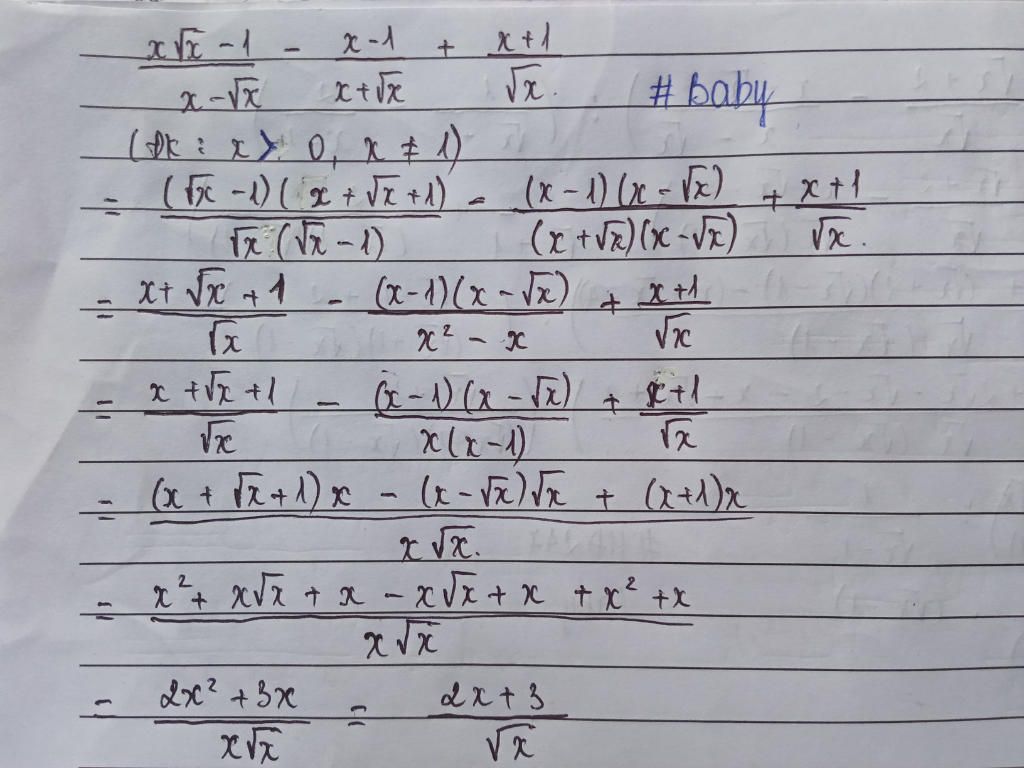 (x√x - 1)/(x - √x) - (x - 1)/(x + √x) + (x + 1)/√x.
# Baby
(ĐK : x > 0, x ≠ 1)
= ((√x - 1)(x + √x + 1))/(√x(√x - 1)) - ((x - 1)(x - √x))/((x + √x)(x - √x)) + (x + 1)/√x.
= (x + √x + 1)/√x - ((x - 1)(x - √x))/(x² - x) + (x + 1)/√x
= (x + √x + 1)/√x - ((x - 1)(x - √x))/(x(x - 1)) + (x + 1)/√x
= ((x + √x + 1)x - (x - √x)√x + (x + 1)x)/(x√x.)
= (x² + x√x + x - x√x + x + x² + x)/(x√x)
= (2x² + 3x)/(x√x) = (2x + 3)/√x